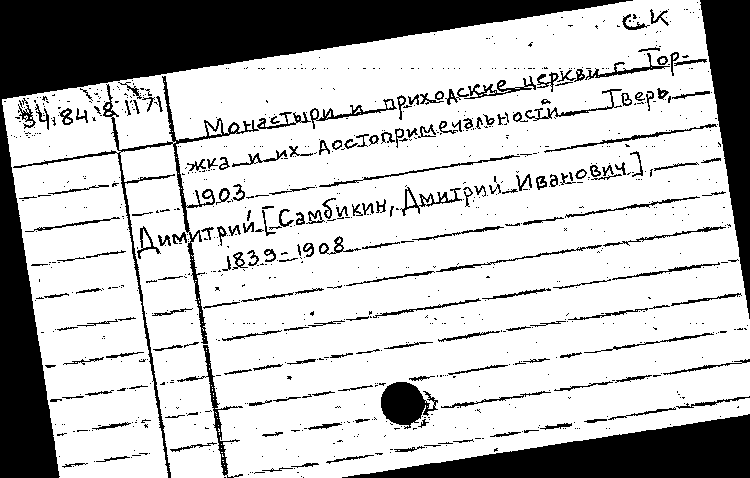 СК
34.84.8 1171
Монастыри и приходские церкви г. Тор-
жка и их достопримечальности. Тверь,
1903
Димитрий [Самбикин, Дмитрий Иванович],
1839-1908